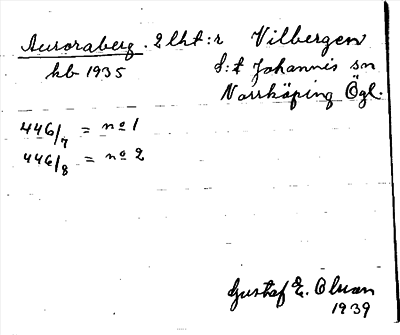 Auroraberg. 2 lht:r Vilbergen
kb 1935 S:t Johannis sn
Norrköping Ögl.
446/7 = no 1
446/8 = no 2
Gustaf E. Olson
1939